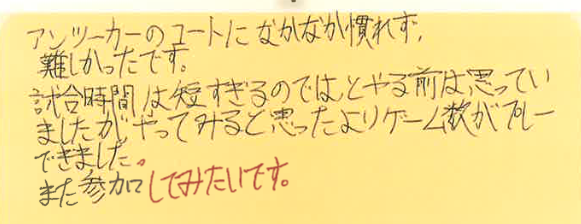 アンツーカーのコートになかなか慣れず、
難しかったです。
試合時間は短すぎるのでは、とやる前は思ってい
ましたが、やってみると思ったよりゲーム数がプレー
できました。
また参加してみたいです。